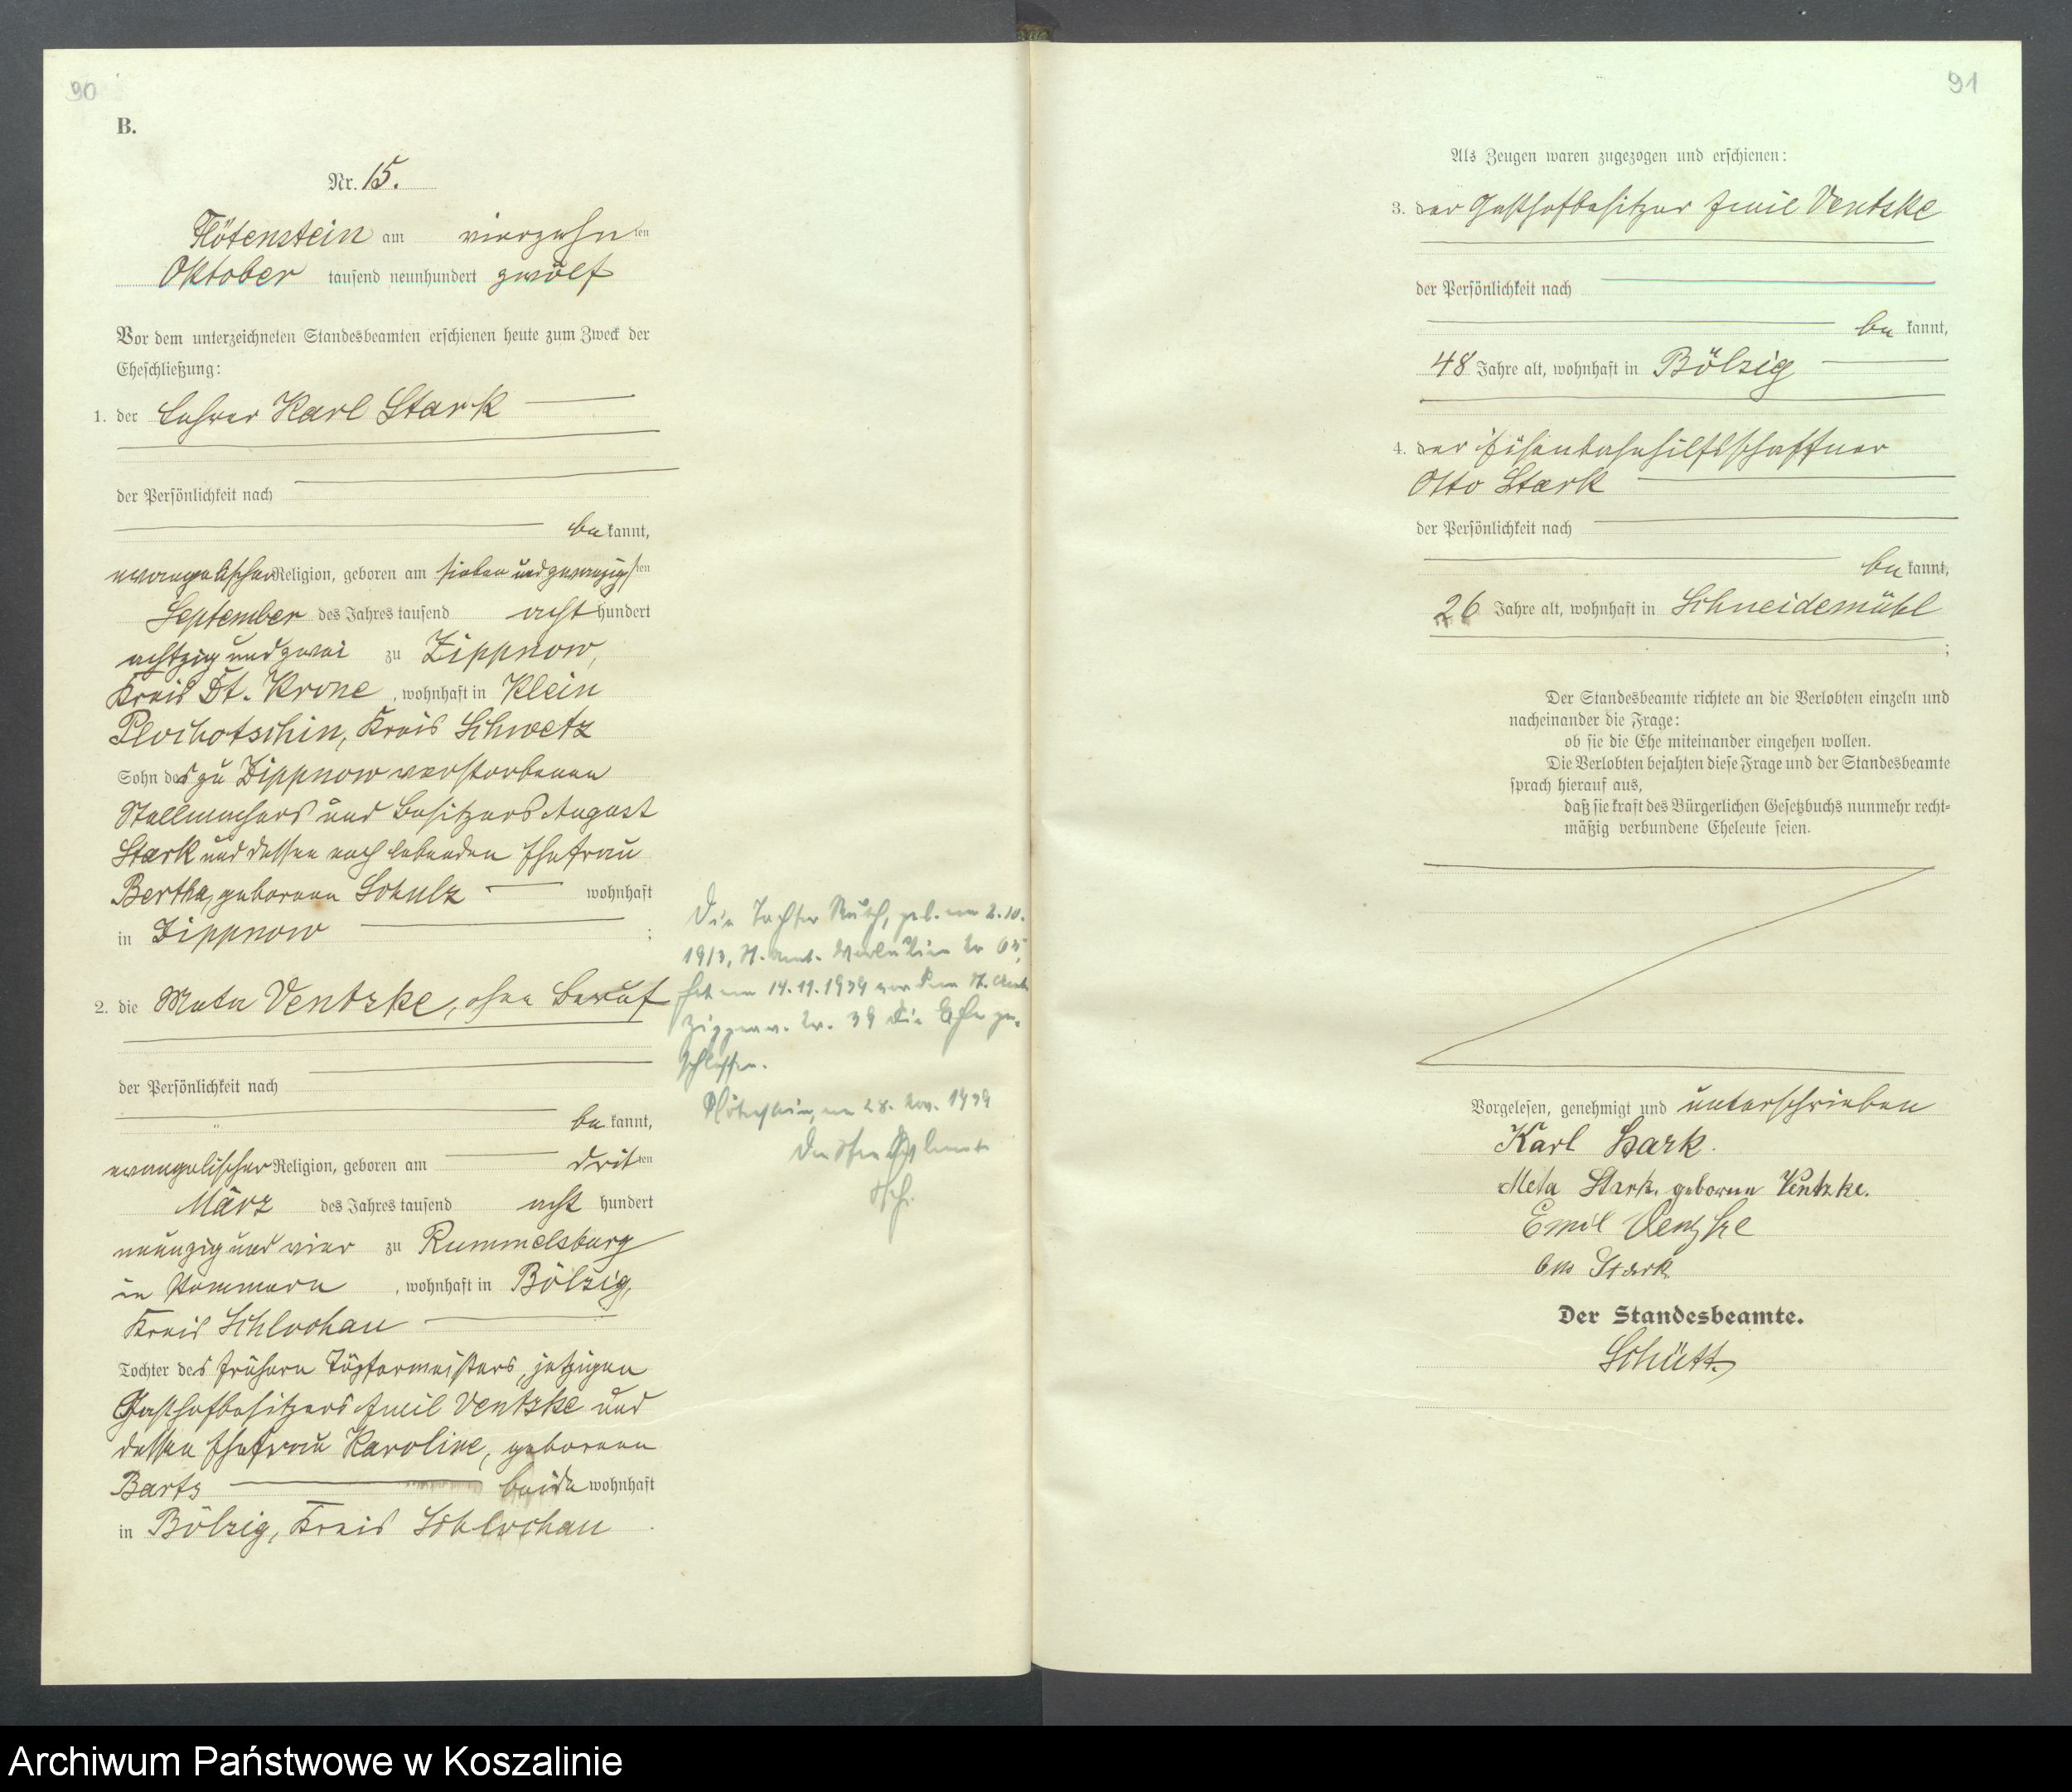 90
B.
Nr. 15.
Flötenstein am vierzehnten
Oktober tausend neunhundert zwölf
Vor dem unterzeichneten Standesbeamten erschienen heute zum Zweck der
Eheschließung:
1. der Lehrer Karl Stark
der Persönlichkeit nach
be kannt,
evangelischer Religion, geboren am sieben und zwanzigsten
September des Jahres tausend acht hundert
achtzig und zwei zu Zippnow,
Kreis Dt. Krone, wohnhaft in Klein
Plochotschin, Kreis Schwetz
Sohn des zu Zippnow verstorbenen
Stellmachers und Besitzers August
Stark und dessen noch lebenden Ehefrau
Bertha, geborenen Schulz wohnhaft
in Zippnow ;
2. die Meta Ventzke, ohne Beruf
der Persönlichkeit nach
be kannt,
evangelischer Religion, geboren am dritten
März des Jahres tausend acht hundert
neunzig und vier zu Rummelsburg
in Pommern, wohnhaft in Bölzig,
Kreis Schlochau
Tochter des frühern Töpfermeisters, jetzigen
Gasthofbesitzers Emil Ventzke und
dessen Ehefrau Karoline, geborenen
Barts beide wohnhaft
in Bölzig, Kreis Schlochau .
Die Tochter Ruth, geb. am 2.10.
1913, St. Amt. Nr 65,
hat am 14.11.1939 vor dem St. Amt
Zippnow. Nr. 39 die Ehe ge-
schlossen.
Flötenstein, am 28. Nov. 1939
Der Standesbeamte
91
Als Zeugen waren zugezogen und erschienen:
3. der Gasthofbesitzer Emil Ventzke
der Persönlichkeit nach
be kannt,
48 Jahre alt, wohnhaft in Bölzig
4. der Eisenbahnhilfsschaffner
Otto Stark
der Persönlichkeit nach
be kannt,
26 Jahre alt, wohnhaft in Schneidemühl
;
Der Standesbeamte richtete an die Verlobten einzeln und
nacheinander die Frage:
ob sie die Ehe miteinander eingehen wollen.
Die Verlobten bejahten diese Frage und der Standesbeamte
sprach hierauf aus,
daß sie kraft des Bürgerlichen Gesetzbuchs nunmehr recht-
mäßig verbundene Eheleute seien.
Vorgelesen, genehmigt und unterschrieben
Karl Stark.
Meta Stark, geborene Ventzke.
Emil Ventzke
Otto Stark
Der Standesbeamte.
Schütt.
Archiwum Państwowe w Koszalinie